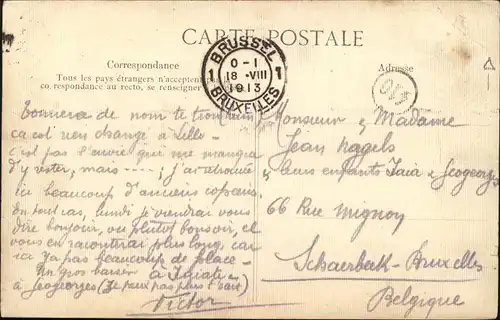 CARTE POSTALE
Correspondance
Adresse
Tous les pays étrangers n'acceptent pas
correspondance au recto, se renseigner
BRUSSEL
1 0-1 1
18 -VIII
1913
BRUXELLES
de nom te
ça est rien changé à Lille.
c'est pas l'envie qui me manqua
d'y rester, mais ----, j'ai retrouvé
ici beaucoup d'anciens copains.
En tout cas, lundi je viendrai vous
dire bonjour, ou plutôt bonsoir, et
vous en raconterai plus long, car
ici j'ai pas beaucoup de place -
Un gros baiser à
à Geogeorges (je peux pas plus l'
Victor
Monsieur & Madame
Jean Nagels
& leurs enfants Iaia & Geogeorges
66 Rue Mignon
Schaerbeek-Bruxelles
Belgique